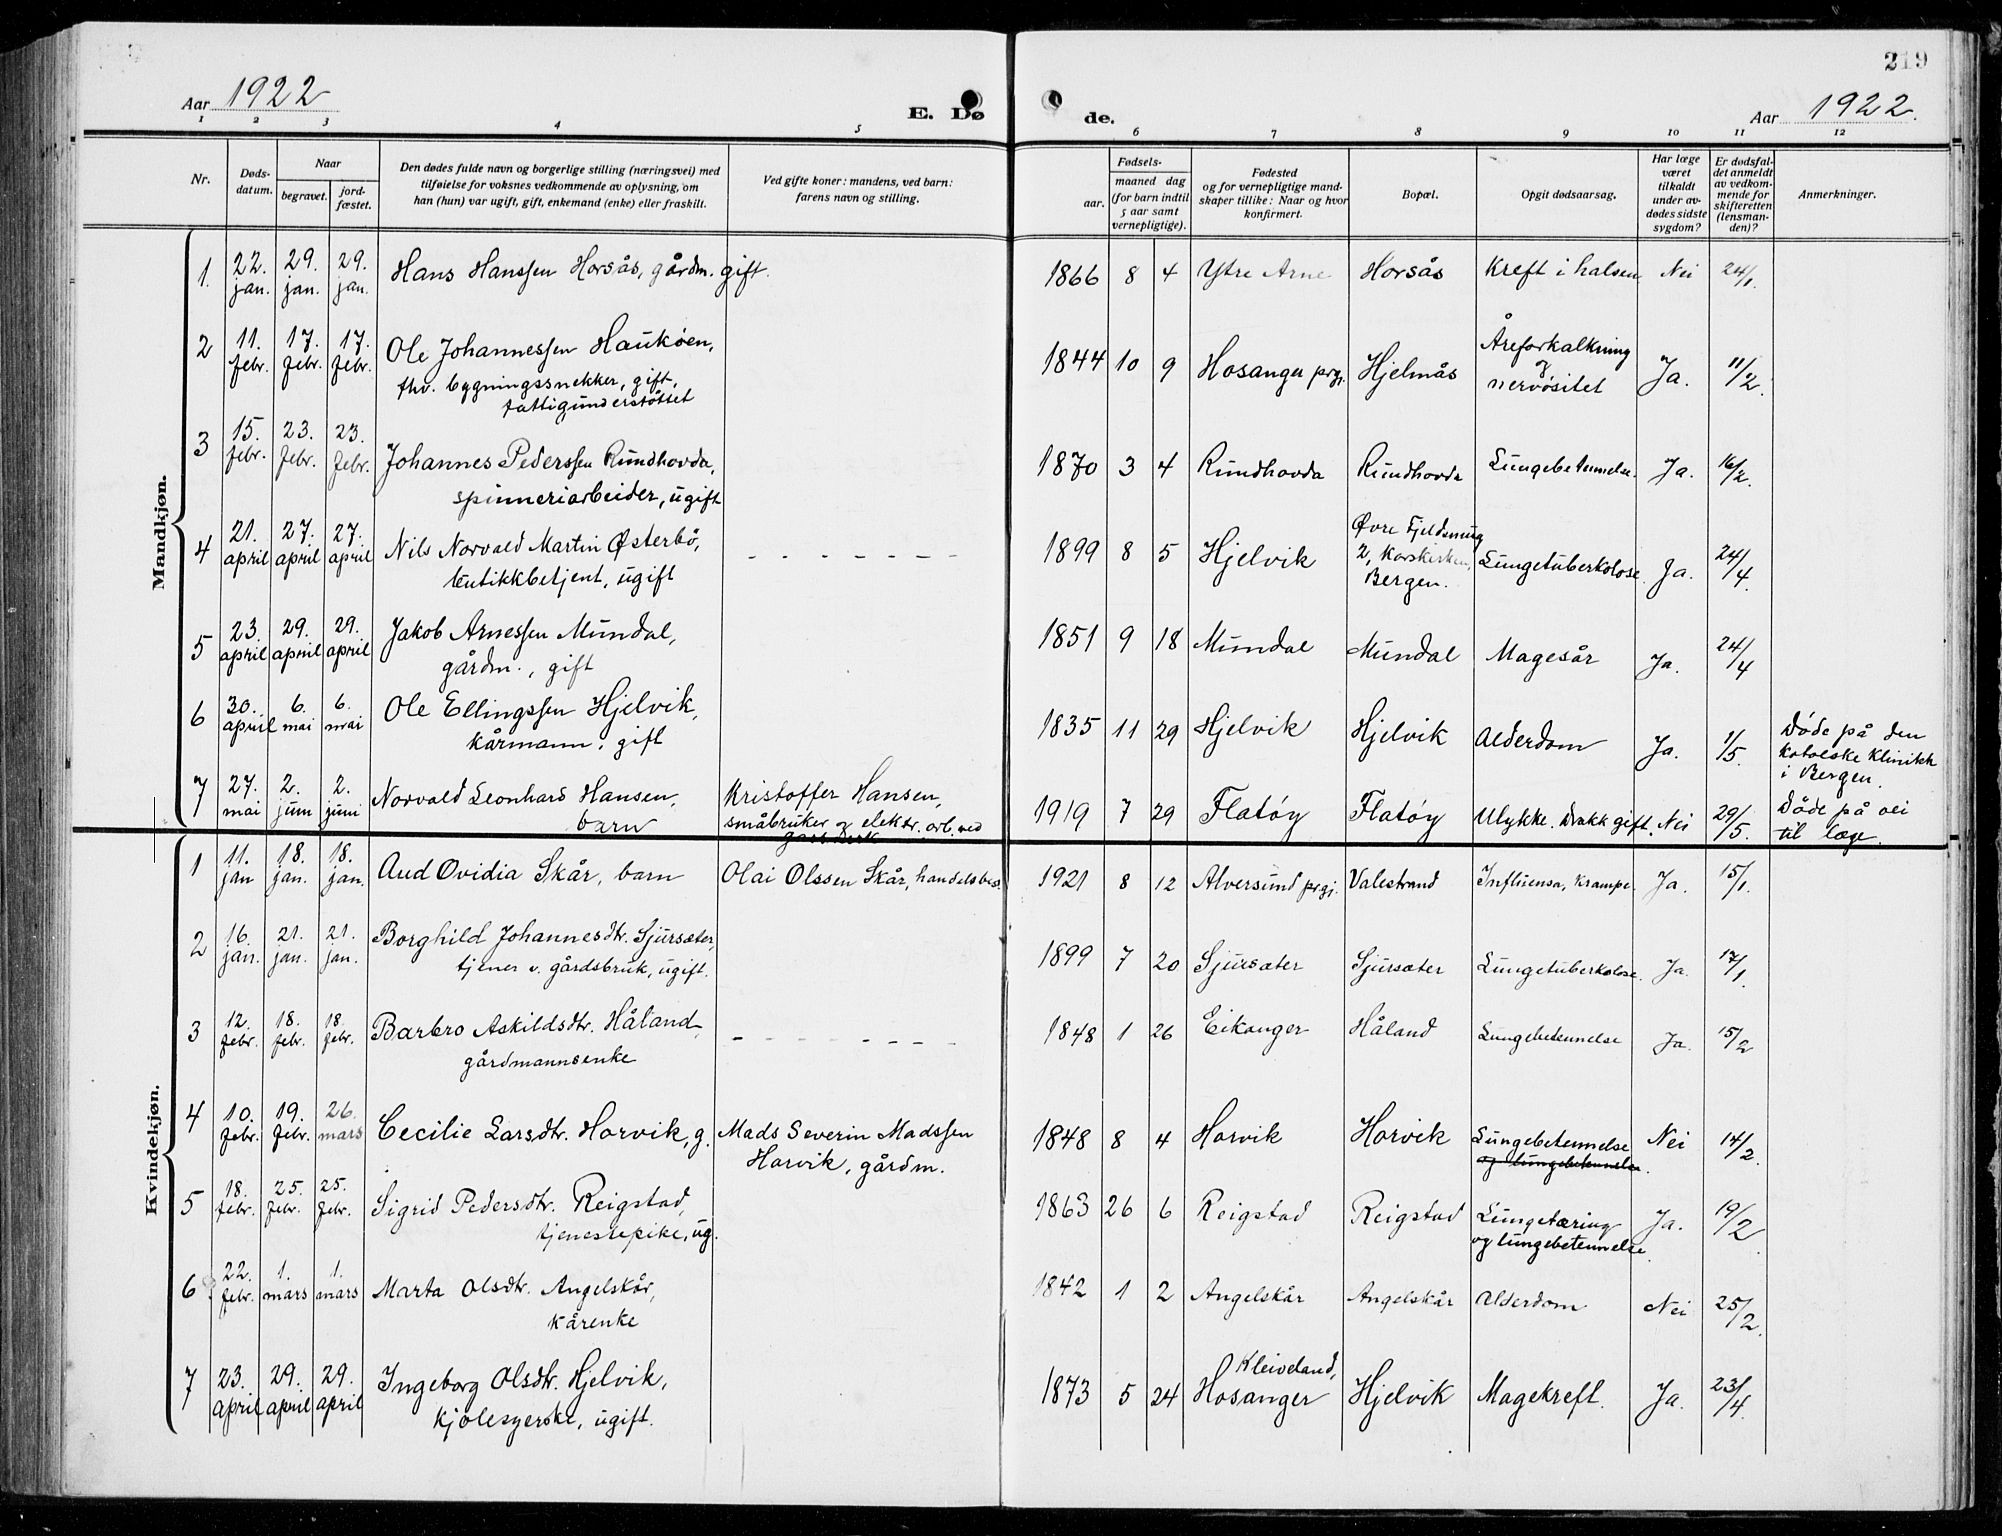 219
Aar 1922
E. Dø de.
Aar 1922.
1 2 3 4 5 6 7 8 9 10 11 12
Nr.
Døds-
datum.
Naar
begravet.
jord-
fæstet.
Den dødes fulde navn og borgerlige stilling (næringsvei) med
tilføielse for voksnes vedkommende av oplysning, om
han (hun) var ugift, gift, enkemand (enke) eller fraskilt.
Ved gifte koner: mandens, ved barn:
farens navn og stilling.
Fødsels-
aar.
maaned dag
(for barn indtil
5 aar samt
vernepligtige).
Fødested
og for vernepligtige mand-
skaper tillike: Naar og hvor
konfirmert.
Bopæl.
Opgit dødsaarsag.
Har læge
været
tilkaldt
under av-
dødes sidste
sygdom?
Er dødsfal-
det anmeldt
av vedkom-
mende for
skifteretten
(lensman-
den)?
Anmerkninger.
Mandkjøn.
1. 22. jan. 29. jan. 29. jan. Hans Hanssen Horsås, gårdm. gift. 1866 8 4 Ytre Arne Horsås Kreft i halsen Nei 24/1.
2 11. febr. 17. febr. 17. febr. Ole Johannessen Haukøen,
fhv. bygningssnekker, gift,
fattigunderstøttet
1844 10 9 Hosanger prgj. Hjelmås Åreforkalkning
og
nervøsitet
Ja. 11/2.
3 15. febr. 23. febr. 23. febr. Johannes Pederssen Rundhovda,
spinneriarbeider, ugift
1870 3 4 Rundhovda Rundhovda Lungebetennelse. Ja. 16/2.
4 21. april 27. april 27. april Nils Norvald Martin Østerbö,
butikkbetjent, ugift
- - - - - - -
1899 8 5 Hjelvik Øvre Fjeldsmug
2, Korskirken,
Bergen.
Lungetuberkolose. Ja. 24/4
5 23. april 29. april 29. april Jakob Arnessen Mundal,
gårdm., gift
1851 9 18 Mundal Mundal Magesår Ja. 24/4
6 30. april 6. mai 6. mai Ole Ellingssen Hjelvik,
kårmann, gift
1835 11 29 Hjelvik Hjelvik Alderdom Ja. 1/5. Døde på den
katolske klinikk
i Bergen.
7 27. mai 2. juni 2. juni Norvald Leonhard Hansen,
barn
Kristoffer Hansen,
småbruker og elektr. arb. ved
1919 7 29 Flatøy Flatøy Ulykke. Drakk gift. Nei 29/5. Døde på vei
til læge.
Kvindekjøn.
1 11. jan 18. jan. 18. jan. Aud Ovidia Skår, barn Olai Olssen Skår, handelsbest. 1921 8 12 Alversund prgj. Valestrand Influensa, krampe Ja. 15/1.
2 16. jan. 21. jan. 21. jan. Borghild Johannesdtr. Sjursæter,
tjener v. gårdsbruk, ugift.
1899 7 20 Sjursæter Sjursæter Lungetuberkolose. Ja. 17/1.
3 12. febr. 18. febr. 18. febr. Barbro Askildsdtr. Håland
gårdmannsenke
- - - - - - - -
1848 1 26 Eikanger Håland Lungebetennelse Ja. 15/2
4 10. febr. 19. febr. 26. mars Cecilie Larsdtr. Horvik, g. Mads Severin Madssen
Horvik, gårdm.
1848 8 4 Horvik Horvik Lungebetennelse
og lungebetennelse.
Nei 14/2.
5 18. febr. 25. febr. 25. febr. Sigrid Pedersdtr. Reigstad,
tjenestepike, ug.
1863 26 6 Reigstad Reigstad Lungetæring
og lungebetennelse.
Ja. 19/2
6 22. febr. 1. mars 1. mars Marta Olsdtr. Angelskår,
kårenke
1842 1 2 Angelskår Angelskår Alderdom Nei 25/2.
7 23. april 29. april 29. april Ingeborg Olsdtr. Hjelvik,
kjolesyerske, ugift.
1873 5 24 Kleiveland,
Hosanger
Hjelvik Magekreft. Ja. 23/4.